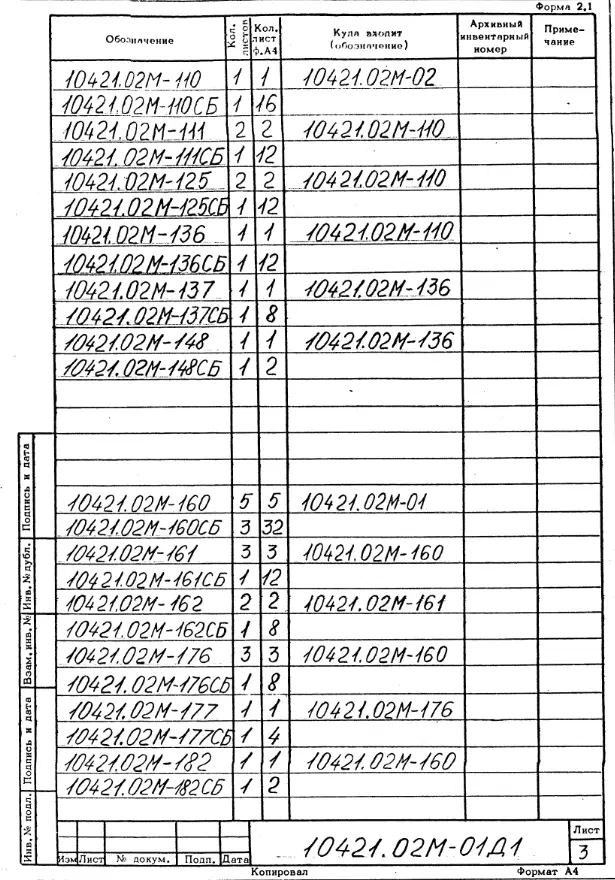 Форма 2.1
Обозначение Кол. листов Кол. лист ф.А4 Куда входит (обозначение) Архивный инвентарный номер Приме-чание
10421.02М-110 1 1 10421.02М-02
10421.02М-110СБ 1 16
10421.02М-111 2 2 10421.02М-110
10421.02М-111СБ 1 12
10421.02М-125 2 2 10421.02М-110
10421.02М-125СБ 1 12
10421.02М-136 1 1 10421.02М-110
10421.02М-136СБ 1 12
10421.02М-137 1 1 10421.02М-136
10421.02М-137СБ 1 8
10421.02М-148 1 1 10421.02М-136
10421.02М-148СБ 1 2
10421.02М-160 5 5 10421.02М-01
10421.02М-160СБ 3 32
10421.02М-161 3 3 10421.02М-160
10421.02М-161СБ 1 12
10421.02М-162 2 2 10421.02М-161
10421.02М-162СБ 1 8
10421.02М-176 3 3 10421.02М-160
10421.02М-176СБ 1 8
10421.02М-177 1 1 10421.02М-176
10421.02М-177СБ 1 4
10421.02М-182 1 1 10421.02М-160
10421.02М-182СБ 1 2
Подпись и дата
Инв. № дубл.
Взам. инв. №
Подпись и дата
Инв. № подл.
Изм Лист № докум. Подп. Дата
10421.02М-01Д1
Лист
3
Копировал Формат А4